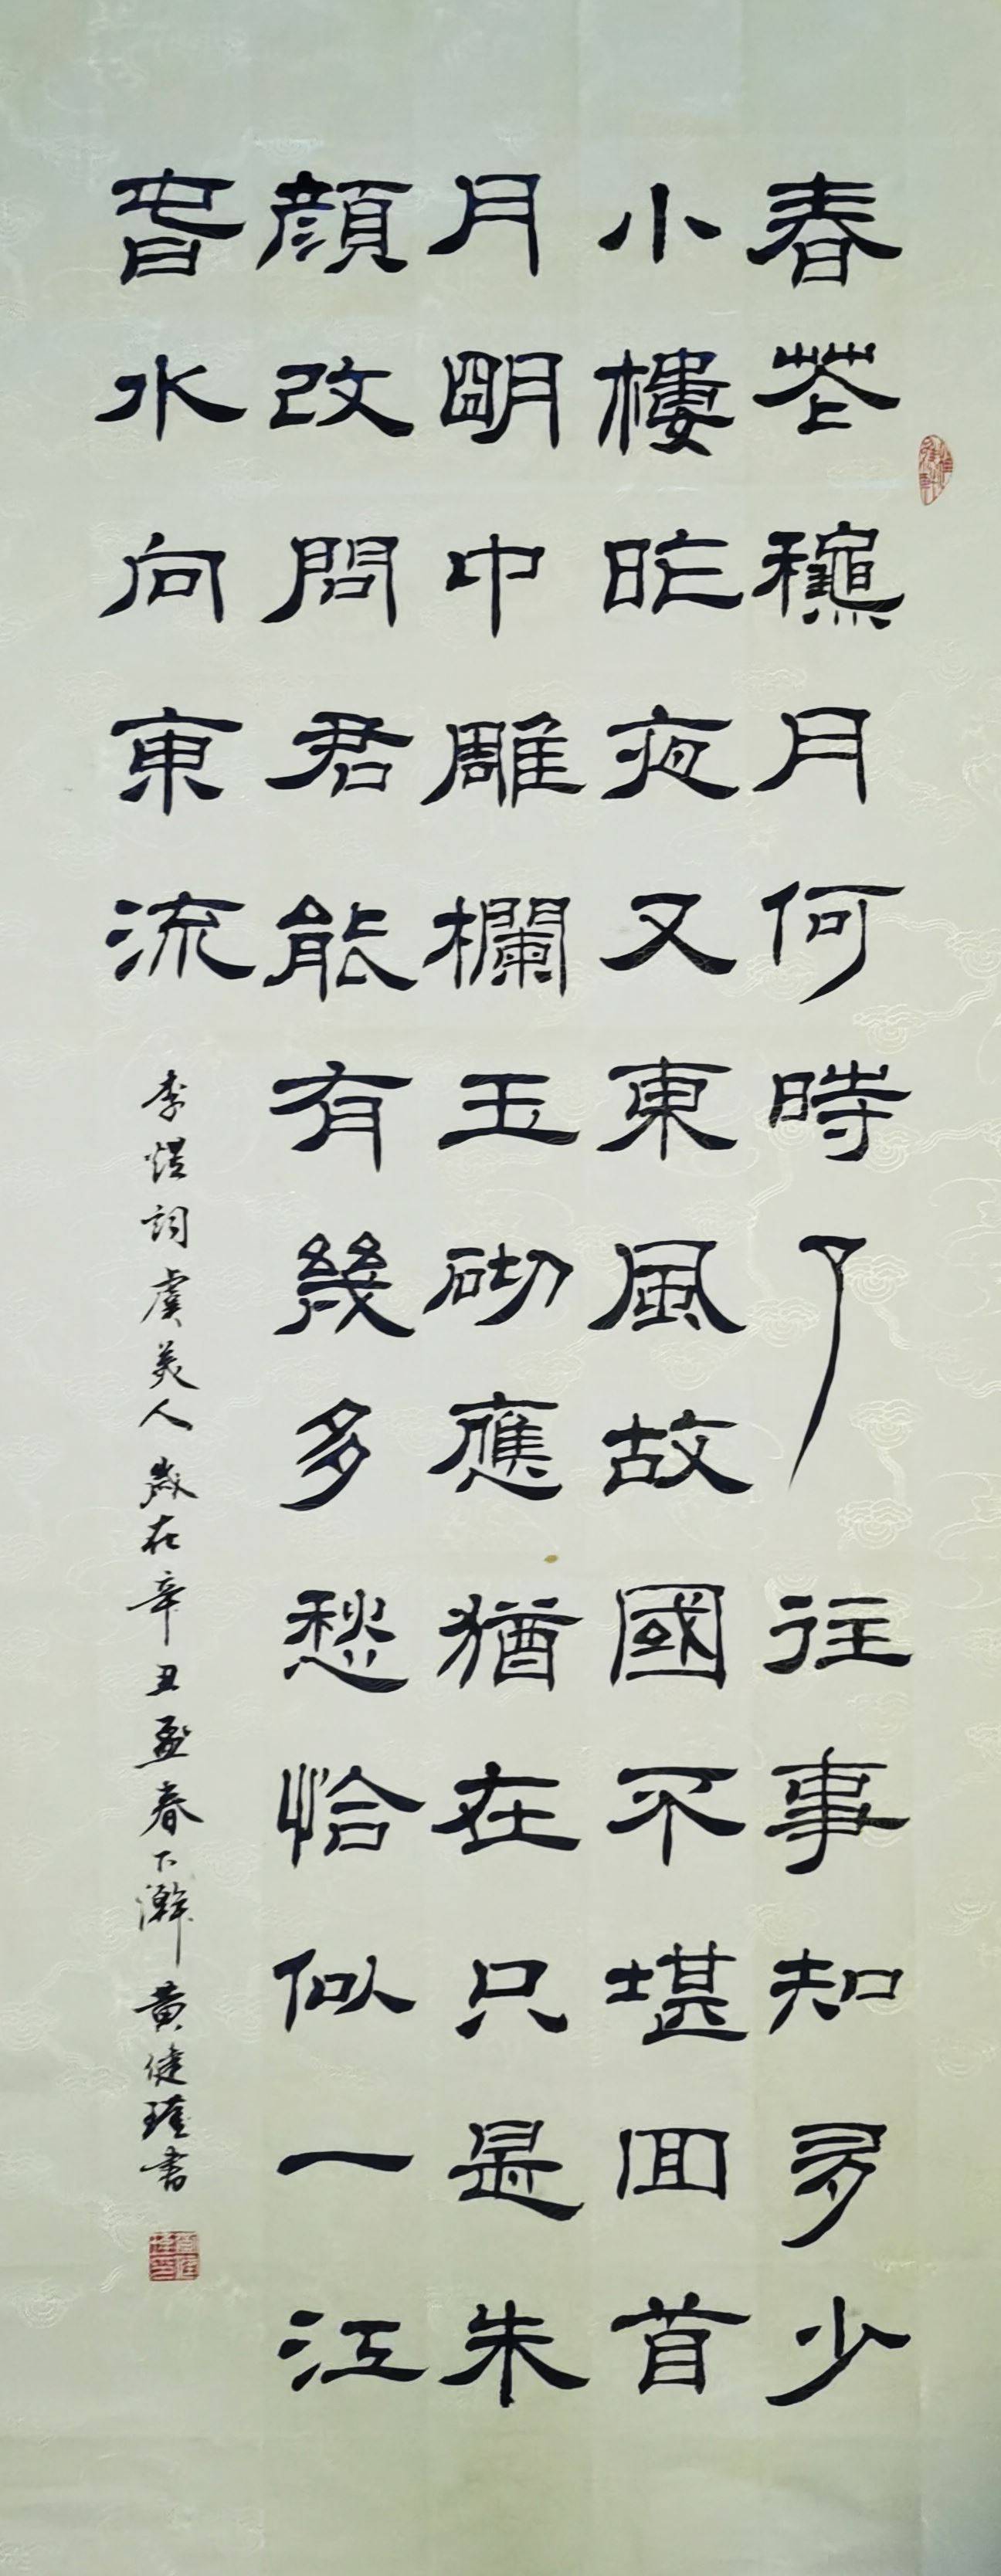 春花龝月何時了往事知多少
小樓昨夜又東風故國不堪回首
月明中雕欄玉砌應猶在只是朱
顏改問君能有幾多愁恰似一江
旾水向東流
李煜詞虞美人歲在辛丑孟春下澣黃健瑾書